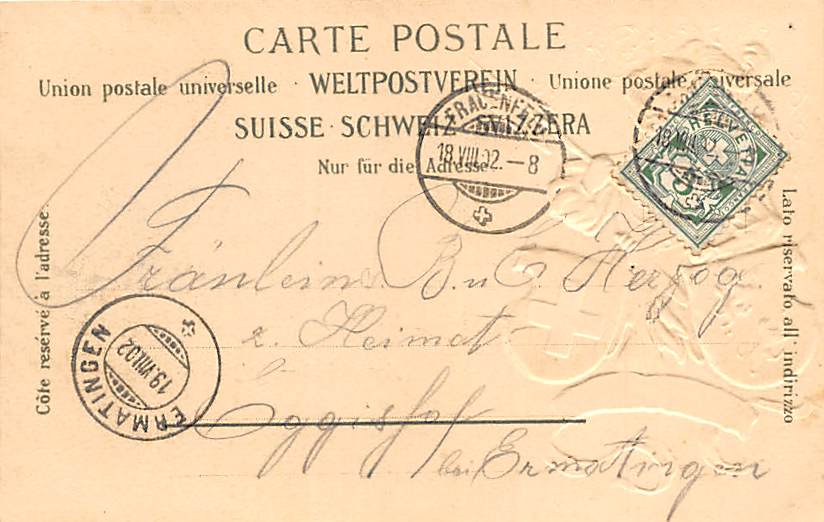 CARTE POSTALE
Union postale universelle · WELTPOSTVEREIN · Unione postale universale
SUISSE · SCHWEIZ · SVIZZERA
Nur für die Adresse
Côté réservé à l'adresse.
Lato riservato all' indirizzo
FRAUENFELD
18.VIII.02.–8
HELVETIA
5
18.VIII.02.
Fräulein B. u. C. Herzog
z. Heimat
Eggishof
bei Ermatingen
ERMATINGEN
19.VIII.02